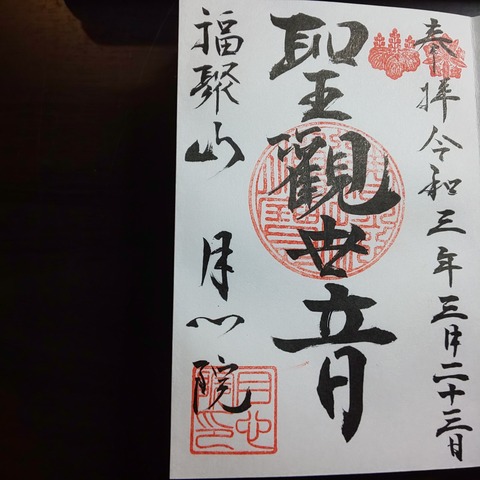 奉拝 令和三年三月二十三日
聖觀世音
福聚山 月心院